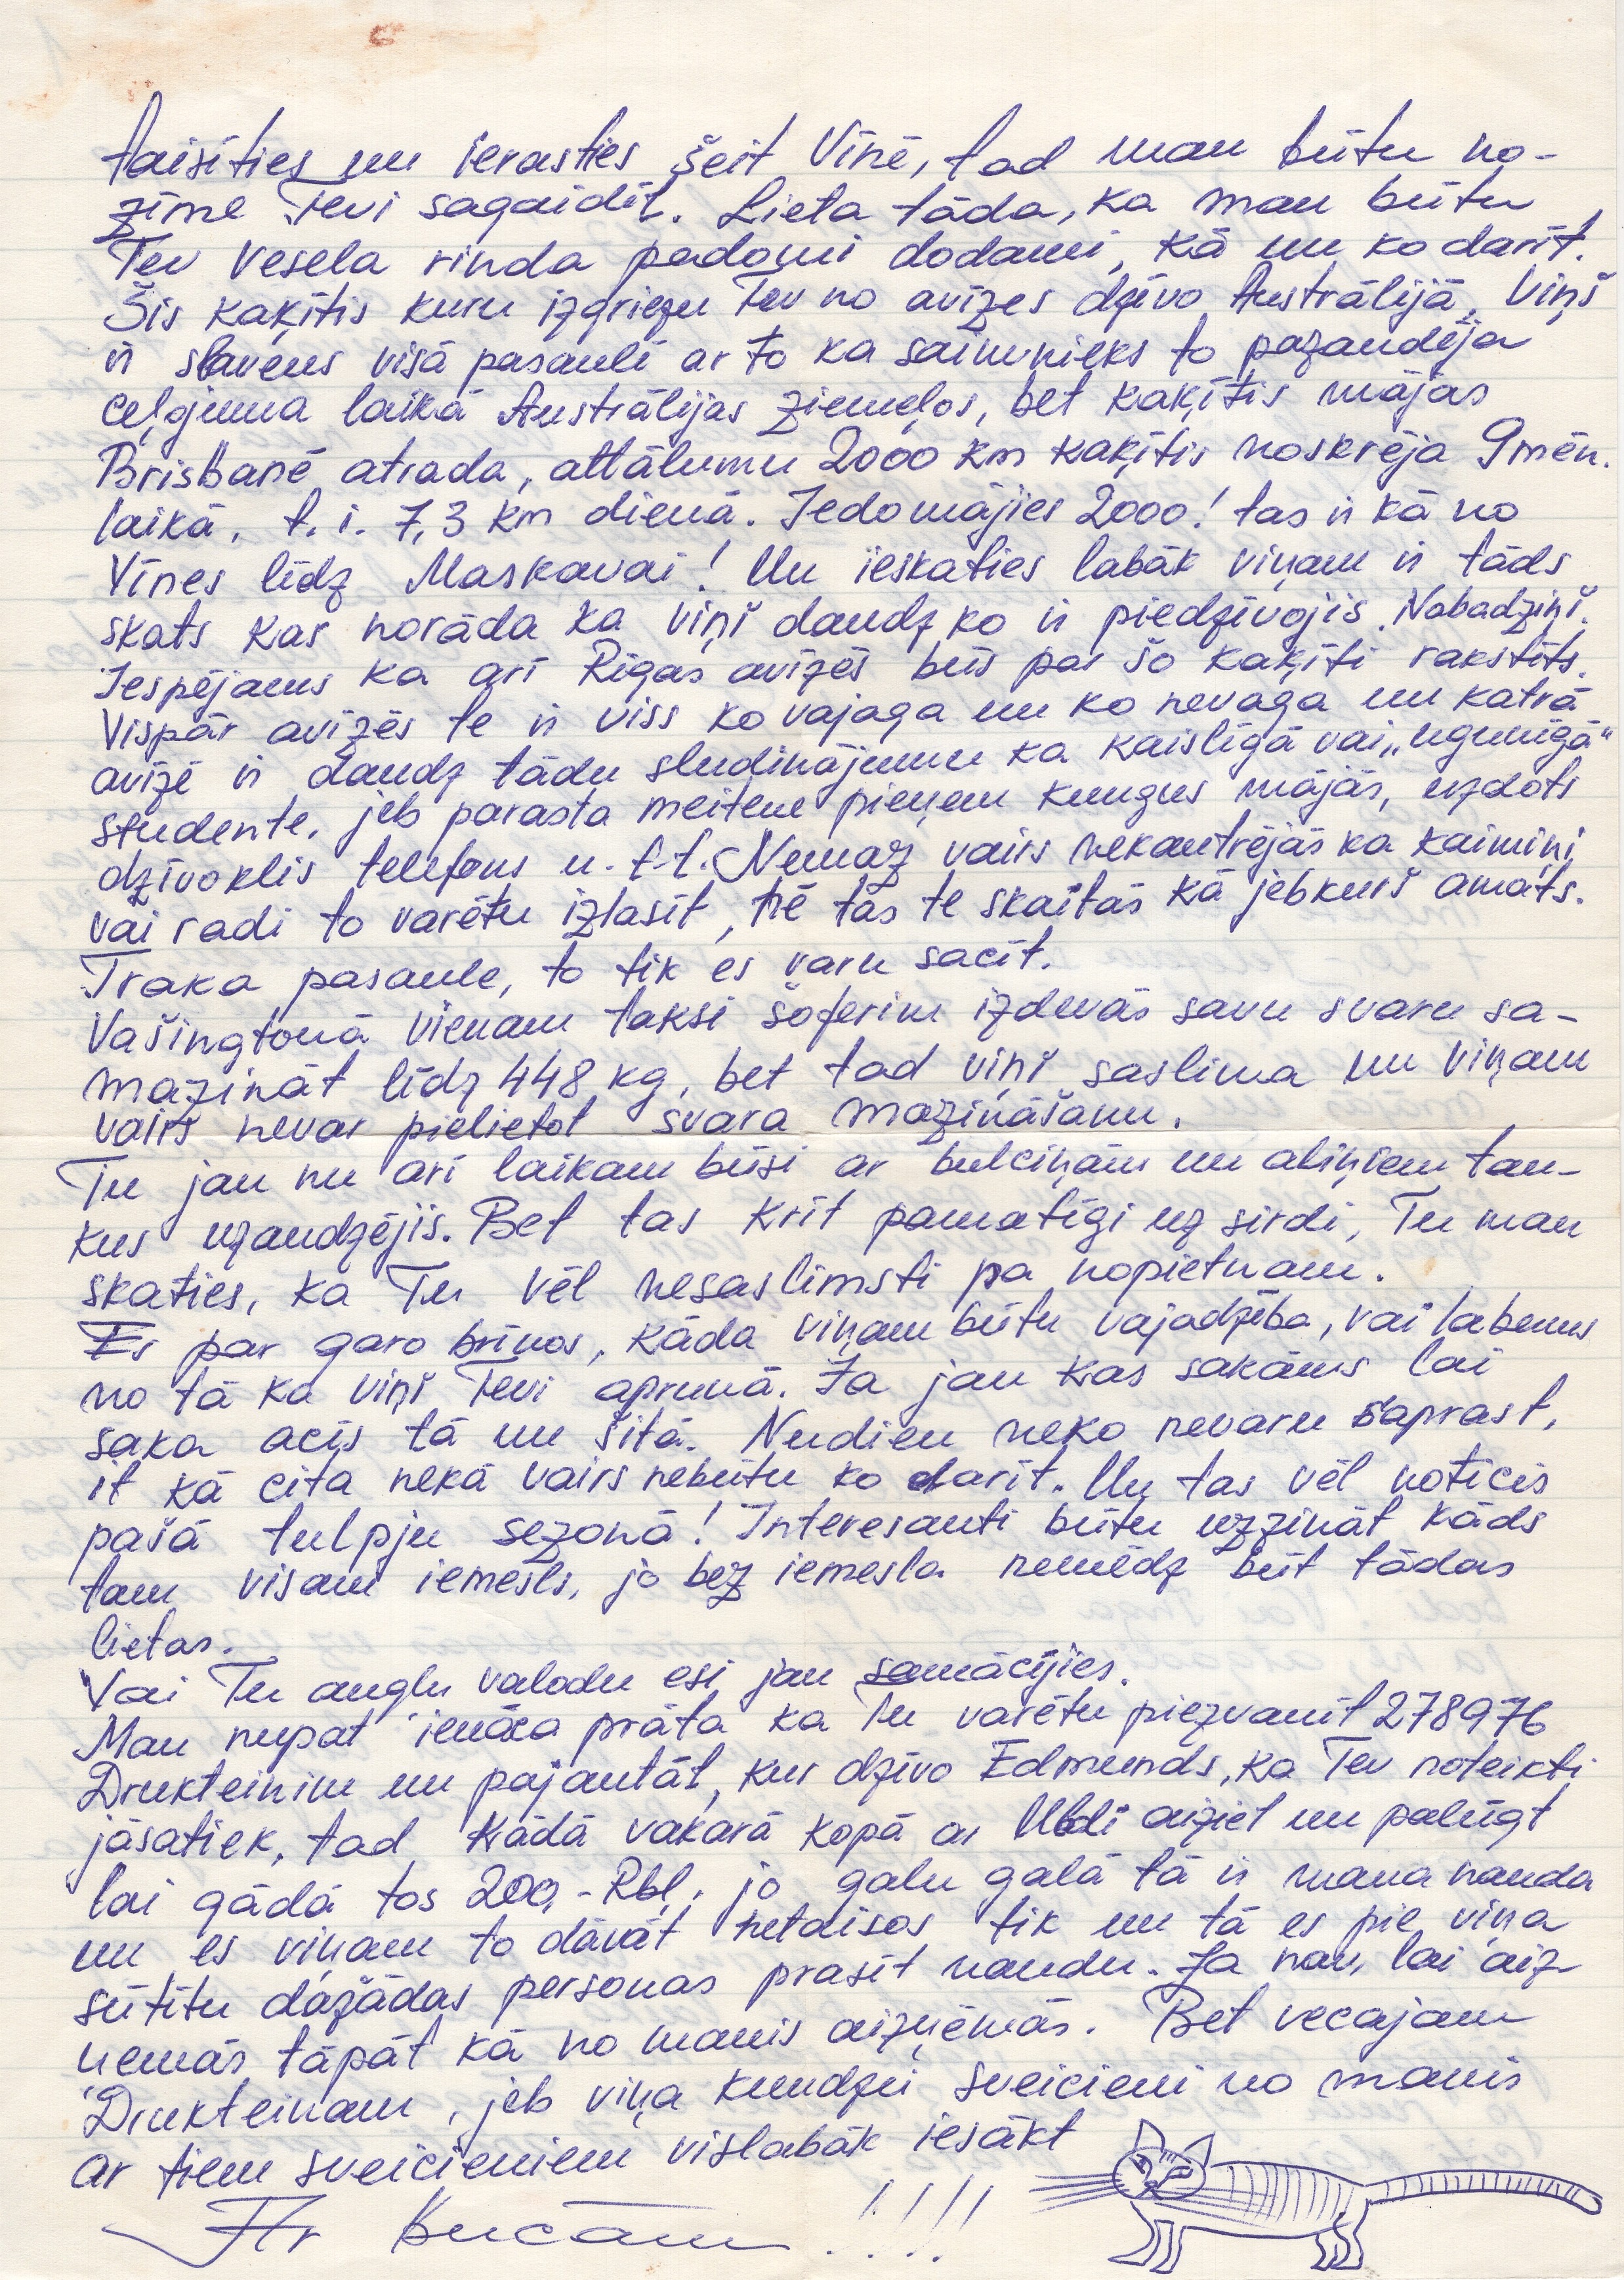 taisīties un ierasties šeit Vīnē, tad man būtu no-
zīme Tevi sagaidīt. Lieta tāda, ka man būtu
Tev vesela rinda padomi dodami, kā un ko darīt.
Šis kaķītis kuru izgriezu Tev no avīzes dzīvo Austrālijā, Viņš
ir slavens visā pasaulē ar to ka saimnieks to pazaudēja
ceļojuma laikā Austrālijas ziemeļos, bet kaķītis mājās
Brisbanē atrada, attālumu 2000 km kaķītis noskrēja 9mēn.
laikā, t. i. 7,3 km dienā. Iedomājies 2000! tas ir kā no
Vīnes līdz Maskavai! Un ieskaties labāk viņam ir tāds
skats kas norāda ka viņš daudz ko ir piedzīvojis. Nabadziņš.
Iespējams ka arī Rīgas avīzēs būs par šo kaķīti rakstīts.
Vispār avīzēs te ir viss ko vajaga un ko nevaga un katrā
avīzē ir daudz tādu sludinājumu ka kaislīgā vai „ugunīgā"
studente, jeb parasta meitene pieņem kungus mājās, uzdots
dzīvoklis telefons u. t.t. Nemaz vairs nekautrējās ka kaimiņi
vai radi to varētu izlasīt, nē tas te skaitās kā jebkurš amats.
Traka pasaule, to tik es varu sacīt.
Vašingtonā vienam taksi šoferim izdevās savu svaru sa-
mazināt līdz 448 kg, bet tad viņš saslima un viņam
vairs nevar pielietot svara mazināšanu.
Tu jau nu arī laikam būsi ar bulciņām un aliņiem tau-
kus uzaudzējis. Bet tas krīt pamatīgi uz sirdi, Tu man
skaties, ka Tu vēl nesaslimsti pa nopietnam.
Es par garo brīnos, kāda viņam būtu vajadzība, vai labums
no tā ka viņš Tevi aprunā. Ja jau kas sakāms lai
saka acīs tā un šitā. Nudien neko nevaru saprast,
it kā cita nekā vairs nebūtu ko darīt. Un tas vēl noticis
pašā tulpju sezonā! Interesanti būtu uzzināt kāds
tam visam iemesls, jo bez iemesla nemēdz būt tādas
lietas.
Vai Tu angļu valodu esi jau samācījies.
Man nupat ienāca prātā ka Tu varētu piezvanīt 278976
Drukteinim un pajautāt, kur dzīvo Edmunds, ka Tev noteikti
jāsatiek, tad kādā vakarā kopā ar Uldi aiziet un palūgt
lai gādā tos 200,- Rbl, jo galu galā tā ir mana nauda
un es viņam to dāvāt netaisos tik un tā es pie viņa
sūtītu dažādas personas prasīt naudu. Ja nav, lai aiz
ņemās tāpāt kā no manis aizņēmās. Bet vecajam
Drukteinam, jeb viņa kundzei sveicieni no manis
ar tiem sveicieniem vislabāk iesākt
Ar Bučām !!!!